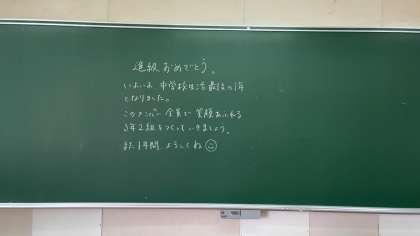 進級おめでとう。
いよいよ 中学校生活最後の1年
となりました。
このメンバー全員で 笑顔あふれる
3年2組をつくっていきましょう。
また1年間 よろしくね